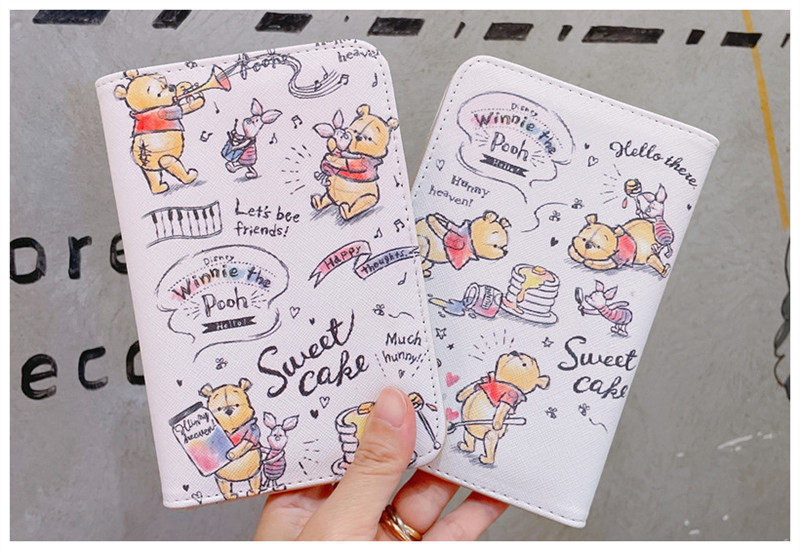 Pooh's
heaven!
Let's bee
friends!
Disney
Winnie the
Pooh
Hello!
Happy
thoughts
Sweet
cake
Much
hunny!
Hunny
heaven!
Disney
Winnie the
Pooh
Hello!
Hello there
Hunny
heaven!
Sweet
cake
ore
eco